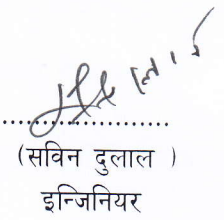 (सविन दुलाल )
इन्जिनियर